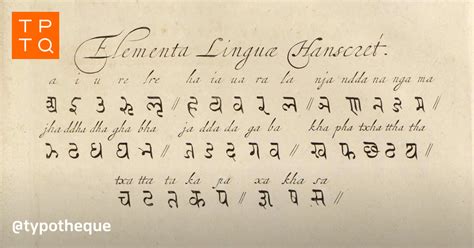 TP
TQ
Elementa Linguæ Hanscret.
a i u re lre ha ia ua ra la nja ndda na nga ma
अ इ उ ऋ ऌ // ह य व र ल // ञ ण न ङ म
jha ddha dha gha bha ja dda da ga ba kha pha txha ttha tha
झ ढ ध घ भ // ज ड द ग ब // ख फ छ ठ थ //
txa tta ta ka pa xa kha sa
च ट त क प // श ष स //
@typotheque